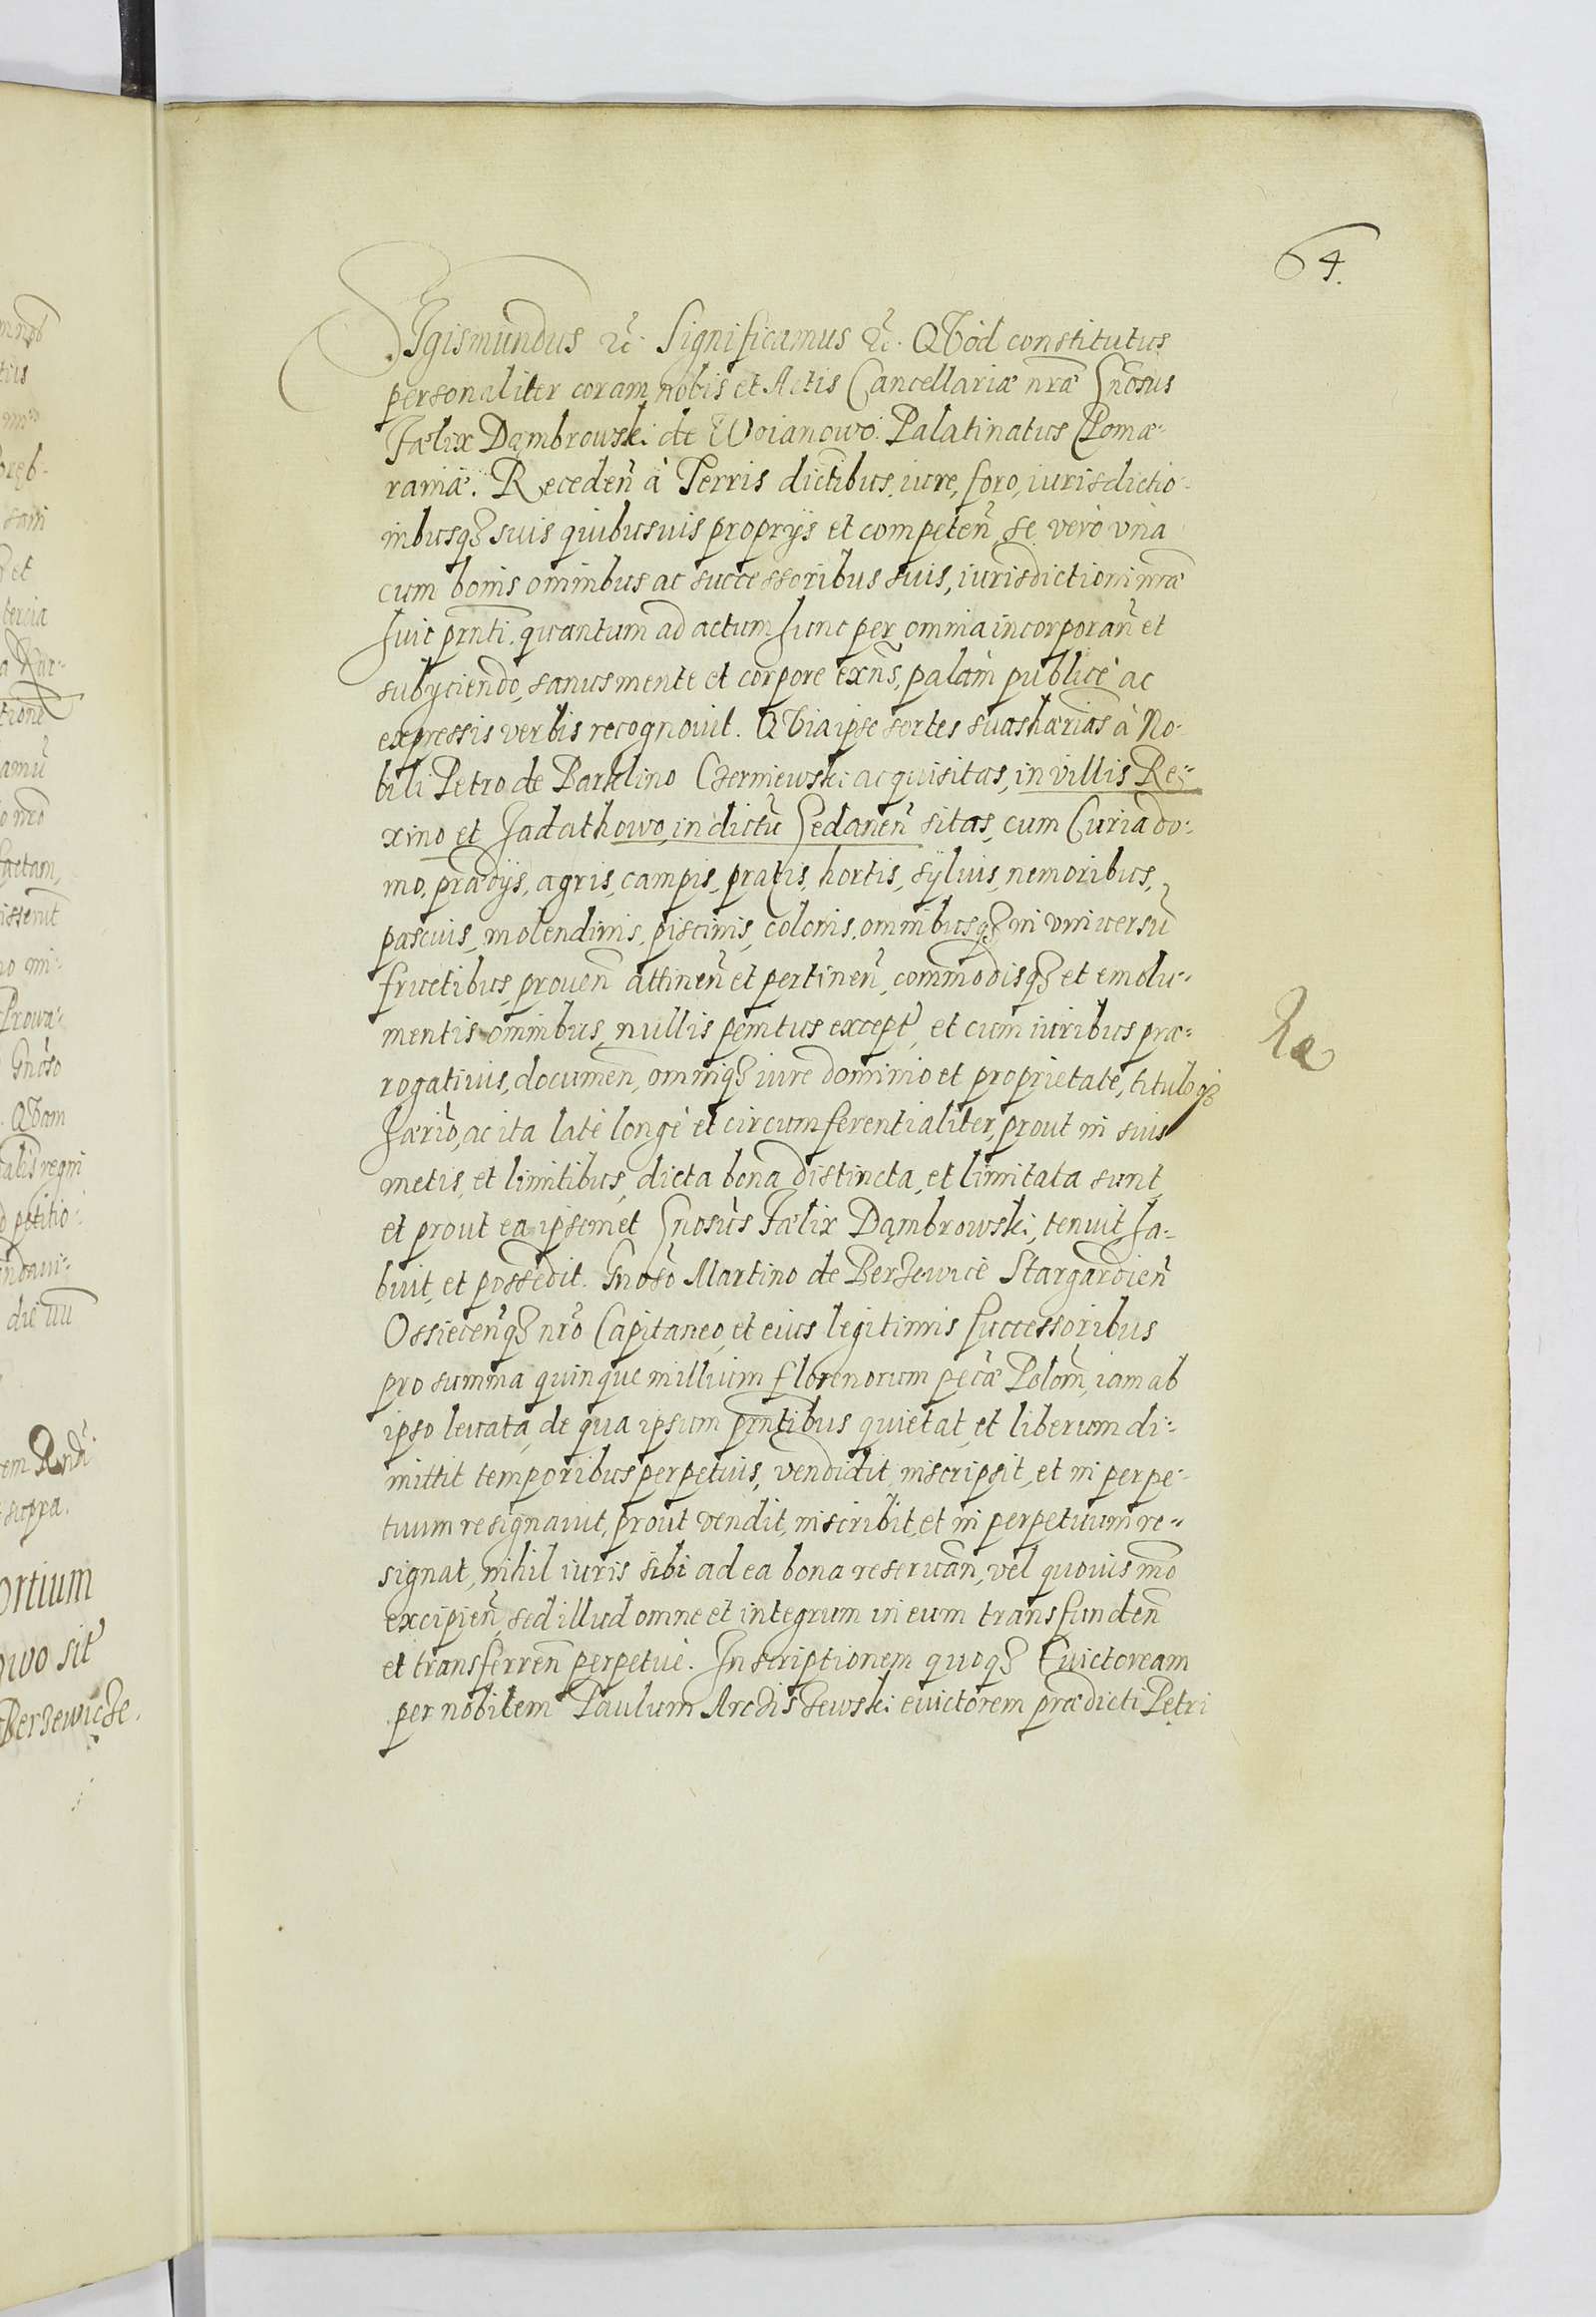 64.
Sigismundus etc. Significamus etc. QVod constitutus
personaliter coram nobis et Actis Cancellariæ nræ Gnosus
Fælix Dąmbrowski de Woianowo Palatinatus Pomæ-
raniæ. Receden à Terris dictibus, iure, foro, iurisdictio-
nibusq3 suis quibusuis proprijs et competen, se vero vna
cum bonis omnibus ac successoribus suis, iurisdictioni nræ
huic prnti. quantum ad actum hunc per omnia incorporan et
subyciendo, sanus mente et corpore exns, palàm publicè ac
expressis verbis recognouit. QVia ipse sortes suas hærias à No-
bili Petro de Parklino Czerniewski acquisitas, in villis Re-
xino et Jadathowo, in dictu Gedanen sitas, cum Curia do-
mo, prædijs, agris, campis, pratis, hortis, sÿluis, nemoribus,
pascuis, molendinis, piscinis, colonis, omnibusq3 in vniuersu
fructibus, prouen attinen et pertinen, commodisq3 et emolu-
mentis omnibus, nullis penitus except, et cum iuribus præ-
rogatiuis, documen, omniq3 iure dominio et proprietate, tituloq3
hærio, ac ita latè longè et circumferentialiter, prout in suis
metis, et limitibus, dicta bona distincta, et limitata sunt,
et prout ea ipsemet Gnosus Fælix Dąmbrowski, tenuit, ha-
buit, et possedit. Gnoso Martino de Berzewicè Stargardien
Ossiecenq3 nro Capitaneo, et eius legitimis successoribus
pro summa quinque millium florenorum pecæ Polon, iam ab
ipso leuata, de qua ipsum prntibus quietat, et liberum di-
mittit temporibus perpetuis, vendidit, inscripsit, et in perpe-
tuum resignauit, prout vendit, inscribit, et in perpetuum re-
signat, nihil iuris sibi ad ea bona reseruan, vel quouis mo
excipien, sed illud omne et integrum in eum transfunden
et transferren perpetuè. Inscriptionem quoq3 Euictoream
per nobilem Paulum Arciszewski euictorem prædicti Petri